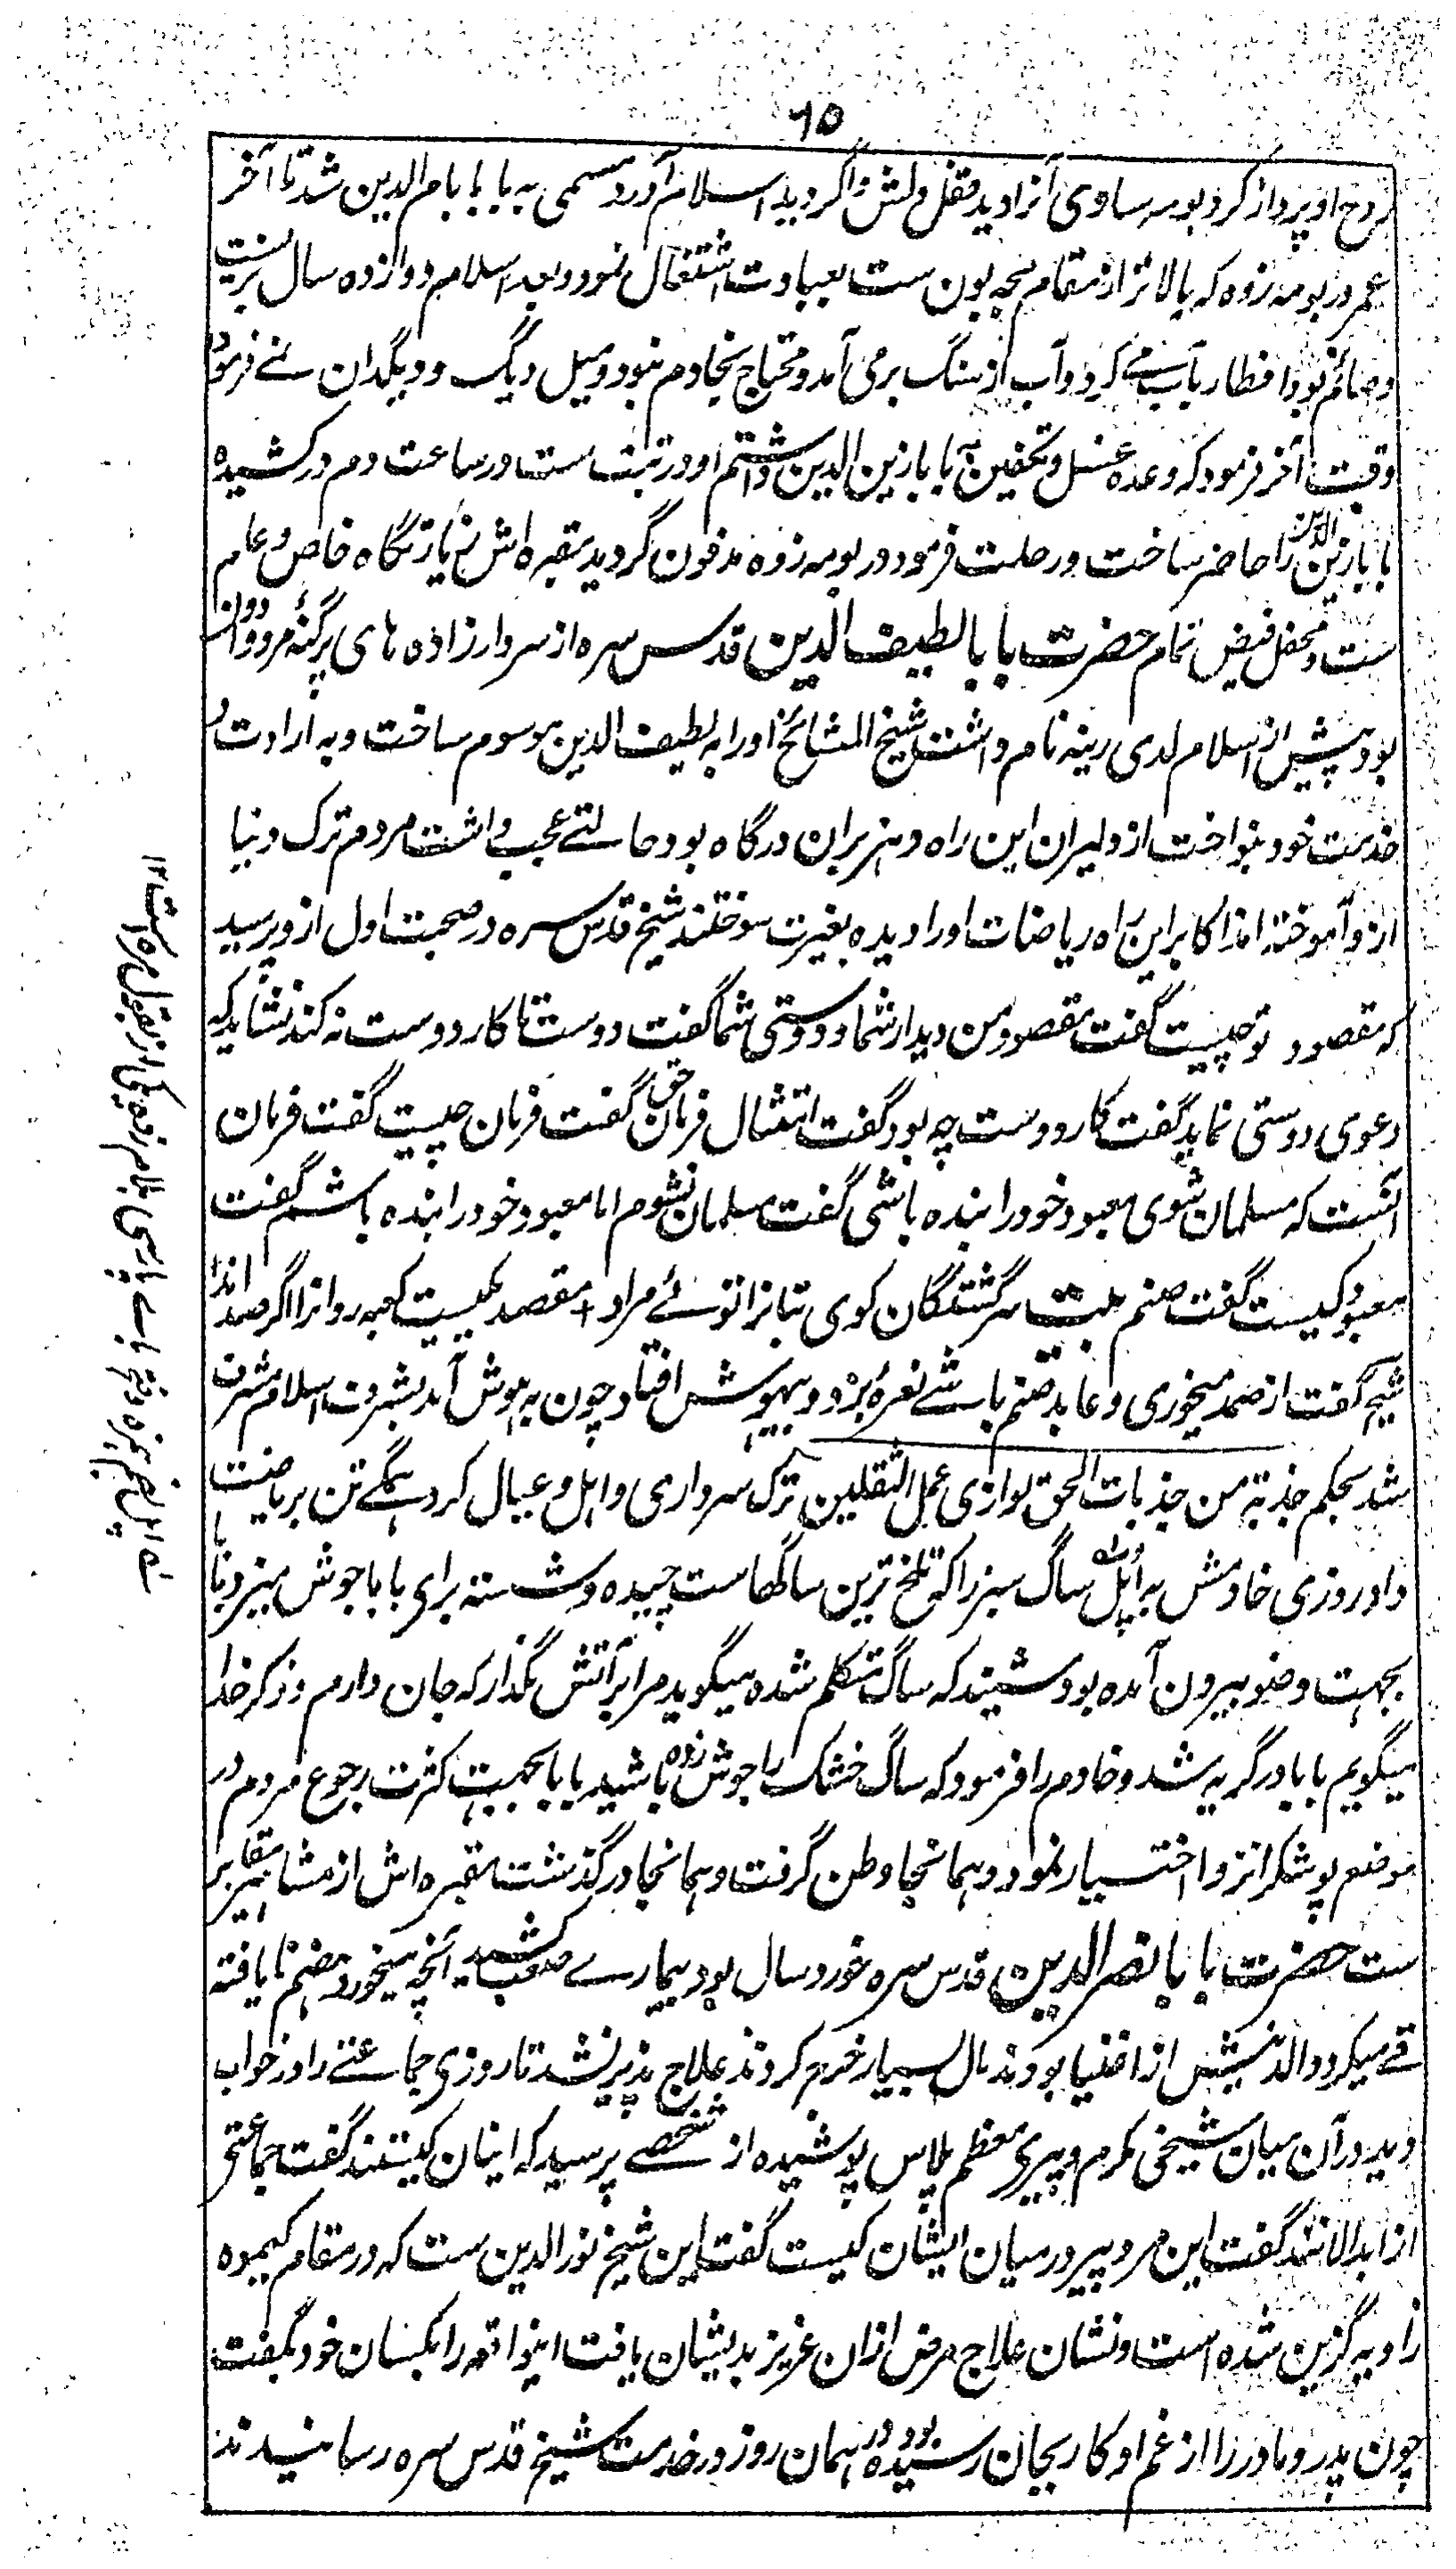 ٦٥
روح او پرواز کرد بومه ساوی آنرا دید قفل دلش وا گردید اسلام آورد مسمی به بابا بام الدین شد تا آخر
عمر در بومه زوه که بالاتر از مقام بچه پون ست بعبادت اشتغال نمود و بعد اسلام دوازده سال بزیست
و صائم بود افطار بآب می کرد و آب از سنگ بر می آمد و محتاج بخادم نبود و میل دیگ و دیگدان نے فرمود
وقت آخر فرمود که وعده غسل و تکفین به بابا زین الدین داشتم او در تبت ست در ساعت دم در کشیده
بابا زین الدین را حاضر ساخت و رحلت فرمود در بومه زوه مدفون گردید مقبره اش زیارتگاه خاص و عام
ست و محفل فیض تمام حضرت بابا لطیف الدین قدس سره از سردار زاده های پرگنهٔ مرو
بود پیش از اسلام لدی رینه نام داشت شیخ المشائخ او را به لطیف الدین موسوم ساخت و به ارادت و
خدمت خود بنواخت از دلیران این راه و هزبران درگاه بود حالتے عجب داشت مردم ترک دنیا
از و آموخته اند اکابر این راه ریاضات او را دیده بغیرت سوختند شیخ قدس سره در صحبت اول از و پرسید
که مقصود تو چیست گفت مقصود من دیدار شما و دوستی شما گفت دوست تا کار دوست نه کند نشاید که
دعوی دوستی نماید گفت کار دوست چه بود گفت امتثال فرمان حق گفت فرمان چیست گفت فرمان
آنست که مسلمان شوی معبود خود را بنده باشی گفت مسلمان نشوم اما معبود خود را بنده باشم گفت
معبود کیست گفت صنم بیت سرگشتگان کوی بتانرا توئے مراد + مقصد یکیست کعبه روانرا اگر صد اند
شیخ گفت از صمد میخوری و عابد صنم باشے نعرهٔ بزد و بیهوش افتاد چون به هوش آمد بشرف اسلام مشرف
شد بحکم جذبة من جذبات الحق توازی عمل الثقلین ترک سرداری و اهل و عیال کرد همگے تن بریاضت
داد روزی خادمش به اپل ساگ سبز را که تلخ ترین ساگهاست چیده و شسته برای بابا جوش میزد بابا
بجهت وضو بیرون آمده بود شنید که ساگ متکلم شده میگوید مرا بر آتش مگذار که جان دارم و ذکر خدا
میگویم بابا در گریه شد و خادم را فرمود که ساگ خشک را جوش زده باشید بابا بجهت کثرت رجوع مردم در
موضع پوشکر انزوا اختیار نمود و همانجا وطن گرفت و همانجا درگذشت مقبره اش از مشاهیر مقابر
ست حضرت بابا نصر الدین قدس سره خورد سال بود بیمارے صعب کشید آنچه میخورد هضم نا یافته
قے میکرد والدینش از اغنیا بودند مال بسیار خرج کردند علاج پذیر نشد تا روزی جماعتے را در خواب
دید در آن میان شیخی مکرم و پیری معظم پلاس پوشیده از شخصے پرسید که اینان کیستند گفت جماعتی
از ابدالانند گفت این مرد پیر در میان ایشان کیست گفت این شیخ نور الدین ست که در مقام کیموه
زاویه گزین شده است و نشان علاج مرض ازان عزیز بدیشان یافت اینواقعه را بکسان خود بگفت
چون پدر و مادر را از غم او کار بجان رسیده بود در همان روز در خدمت شیخ قدس سره رسانیدند